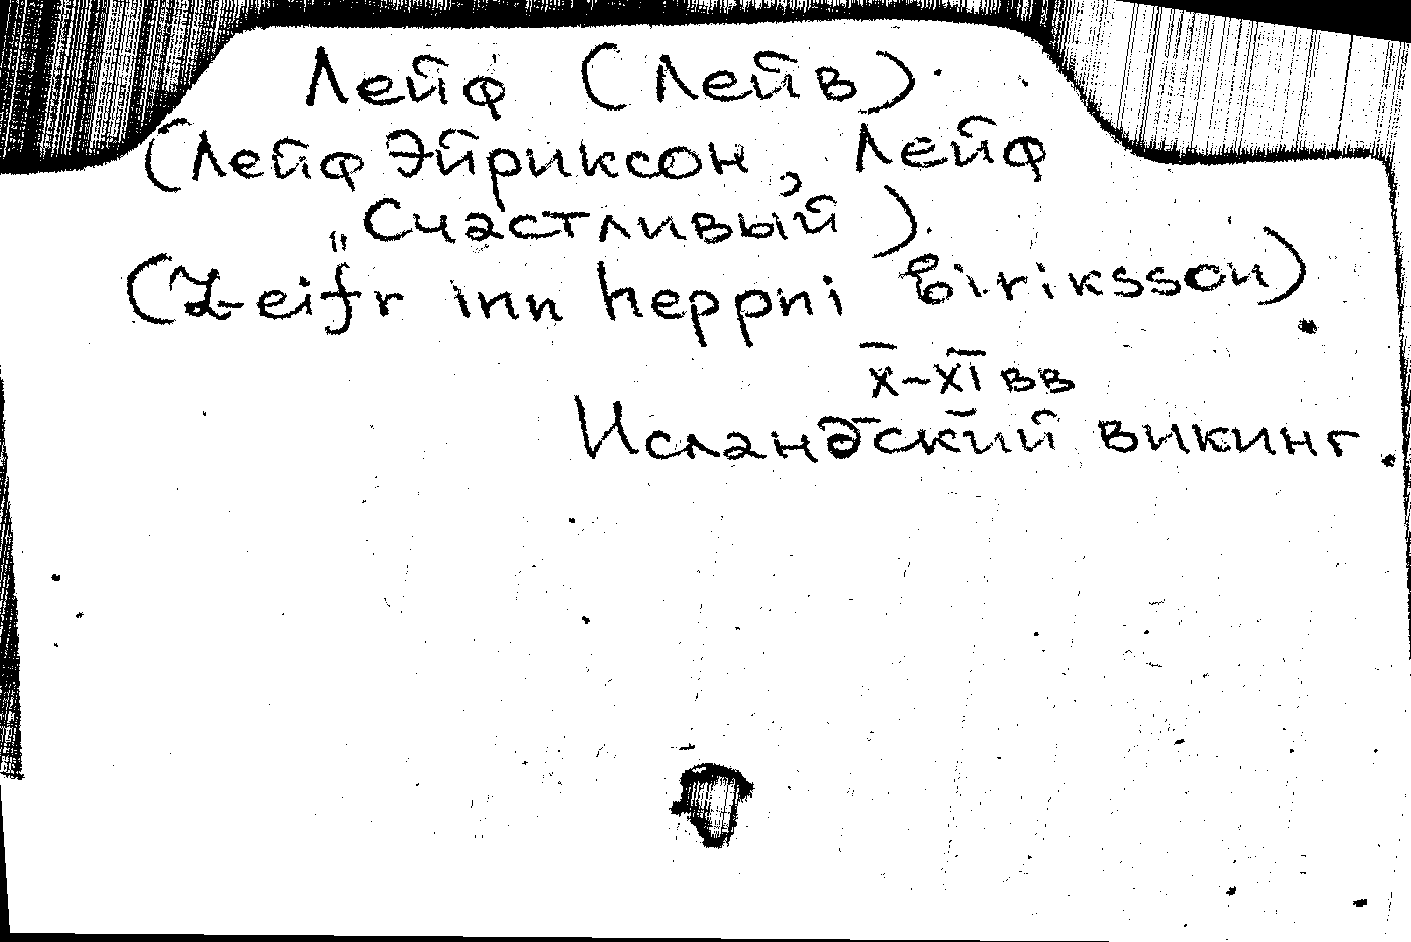 Лейф (Лейв).
(Лейф Эйриксон, Лейф
„Счастливый").
(Leifr inn heppni Eiriksson).
X–XI вв
Исландский викинг.